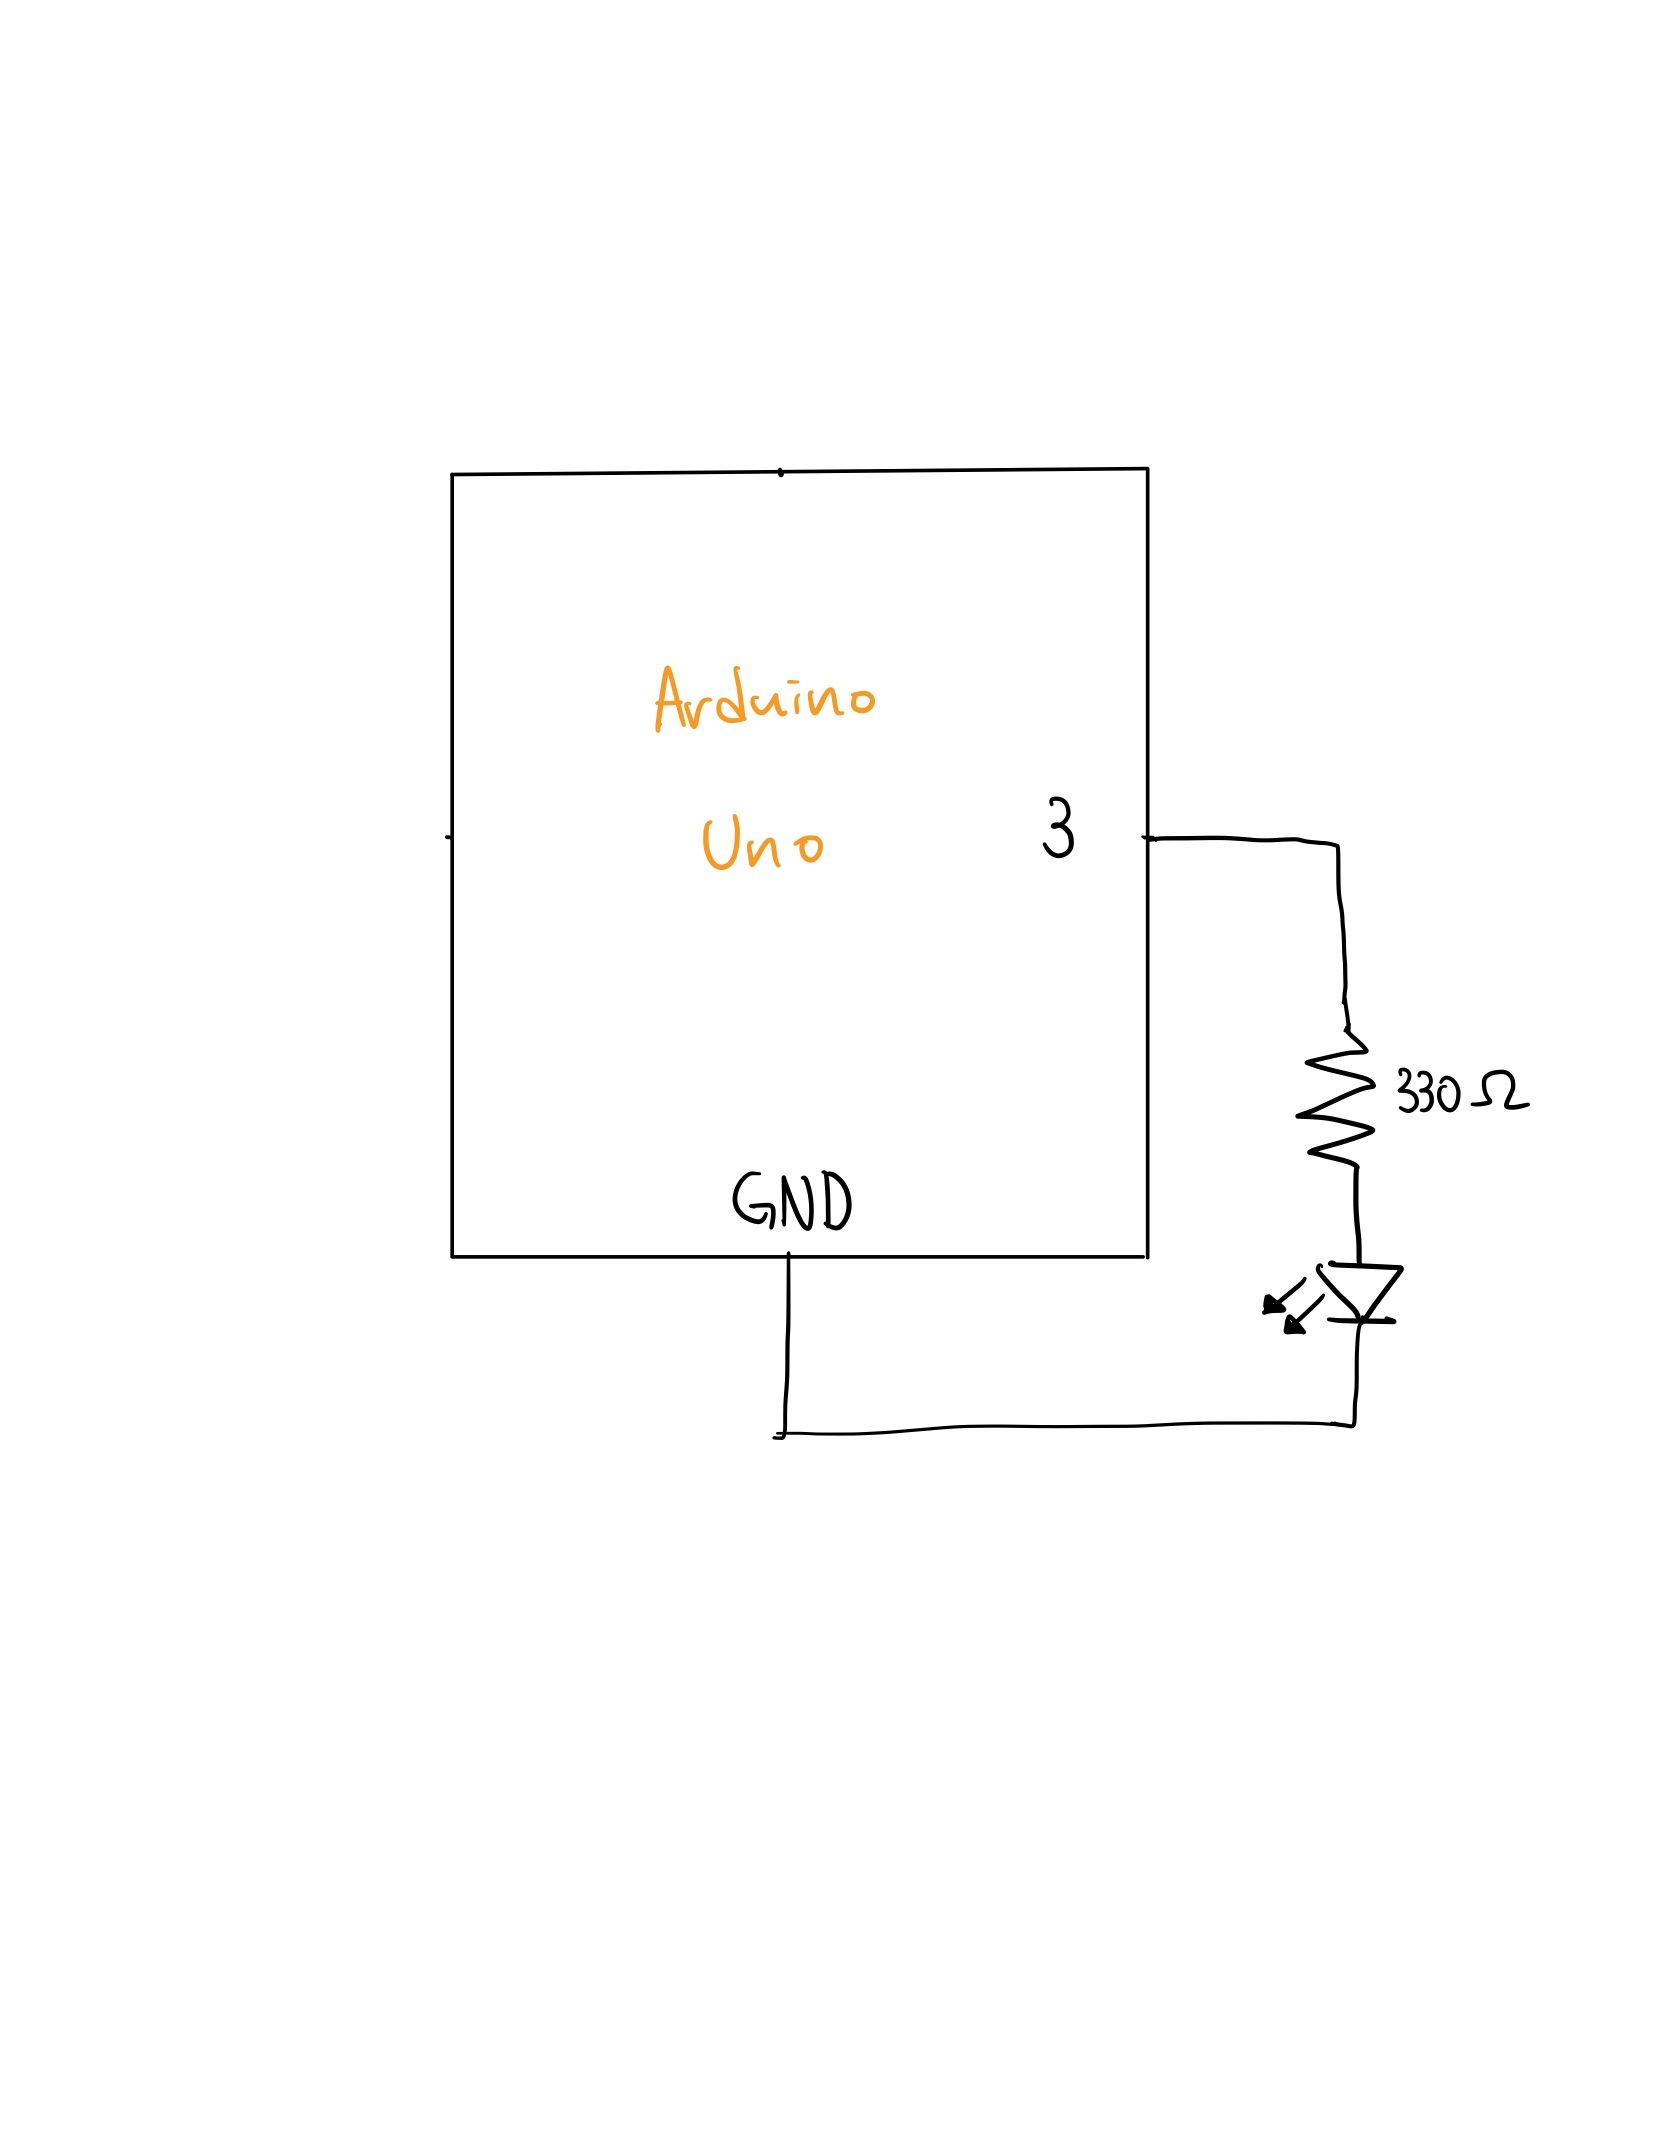 Arduino
Uno
3
330 Ω
GND